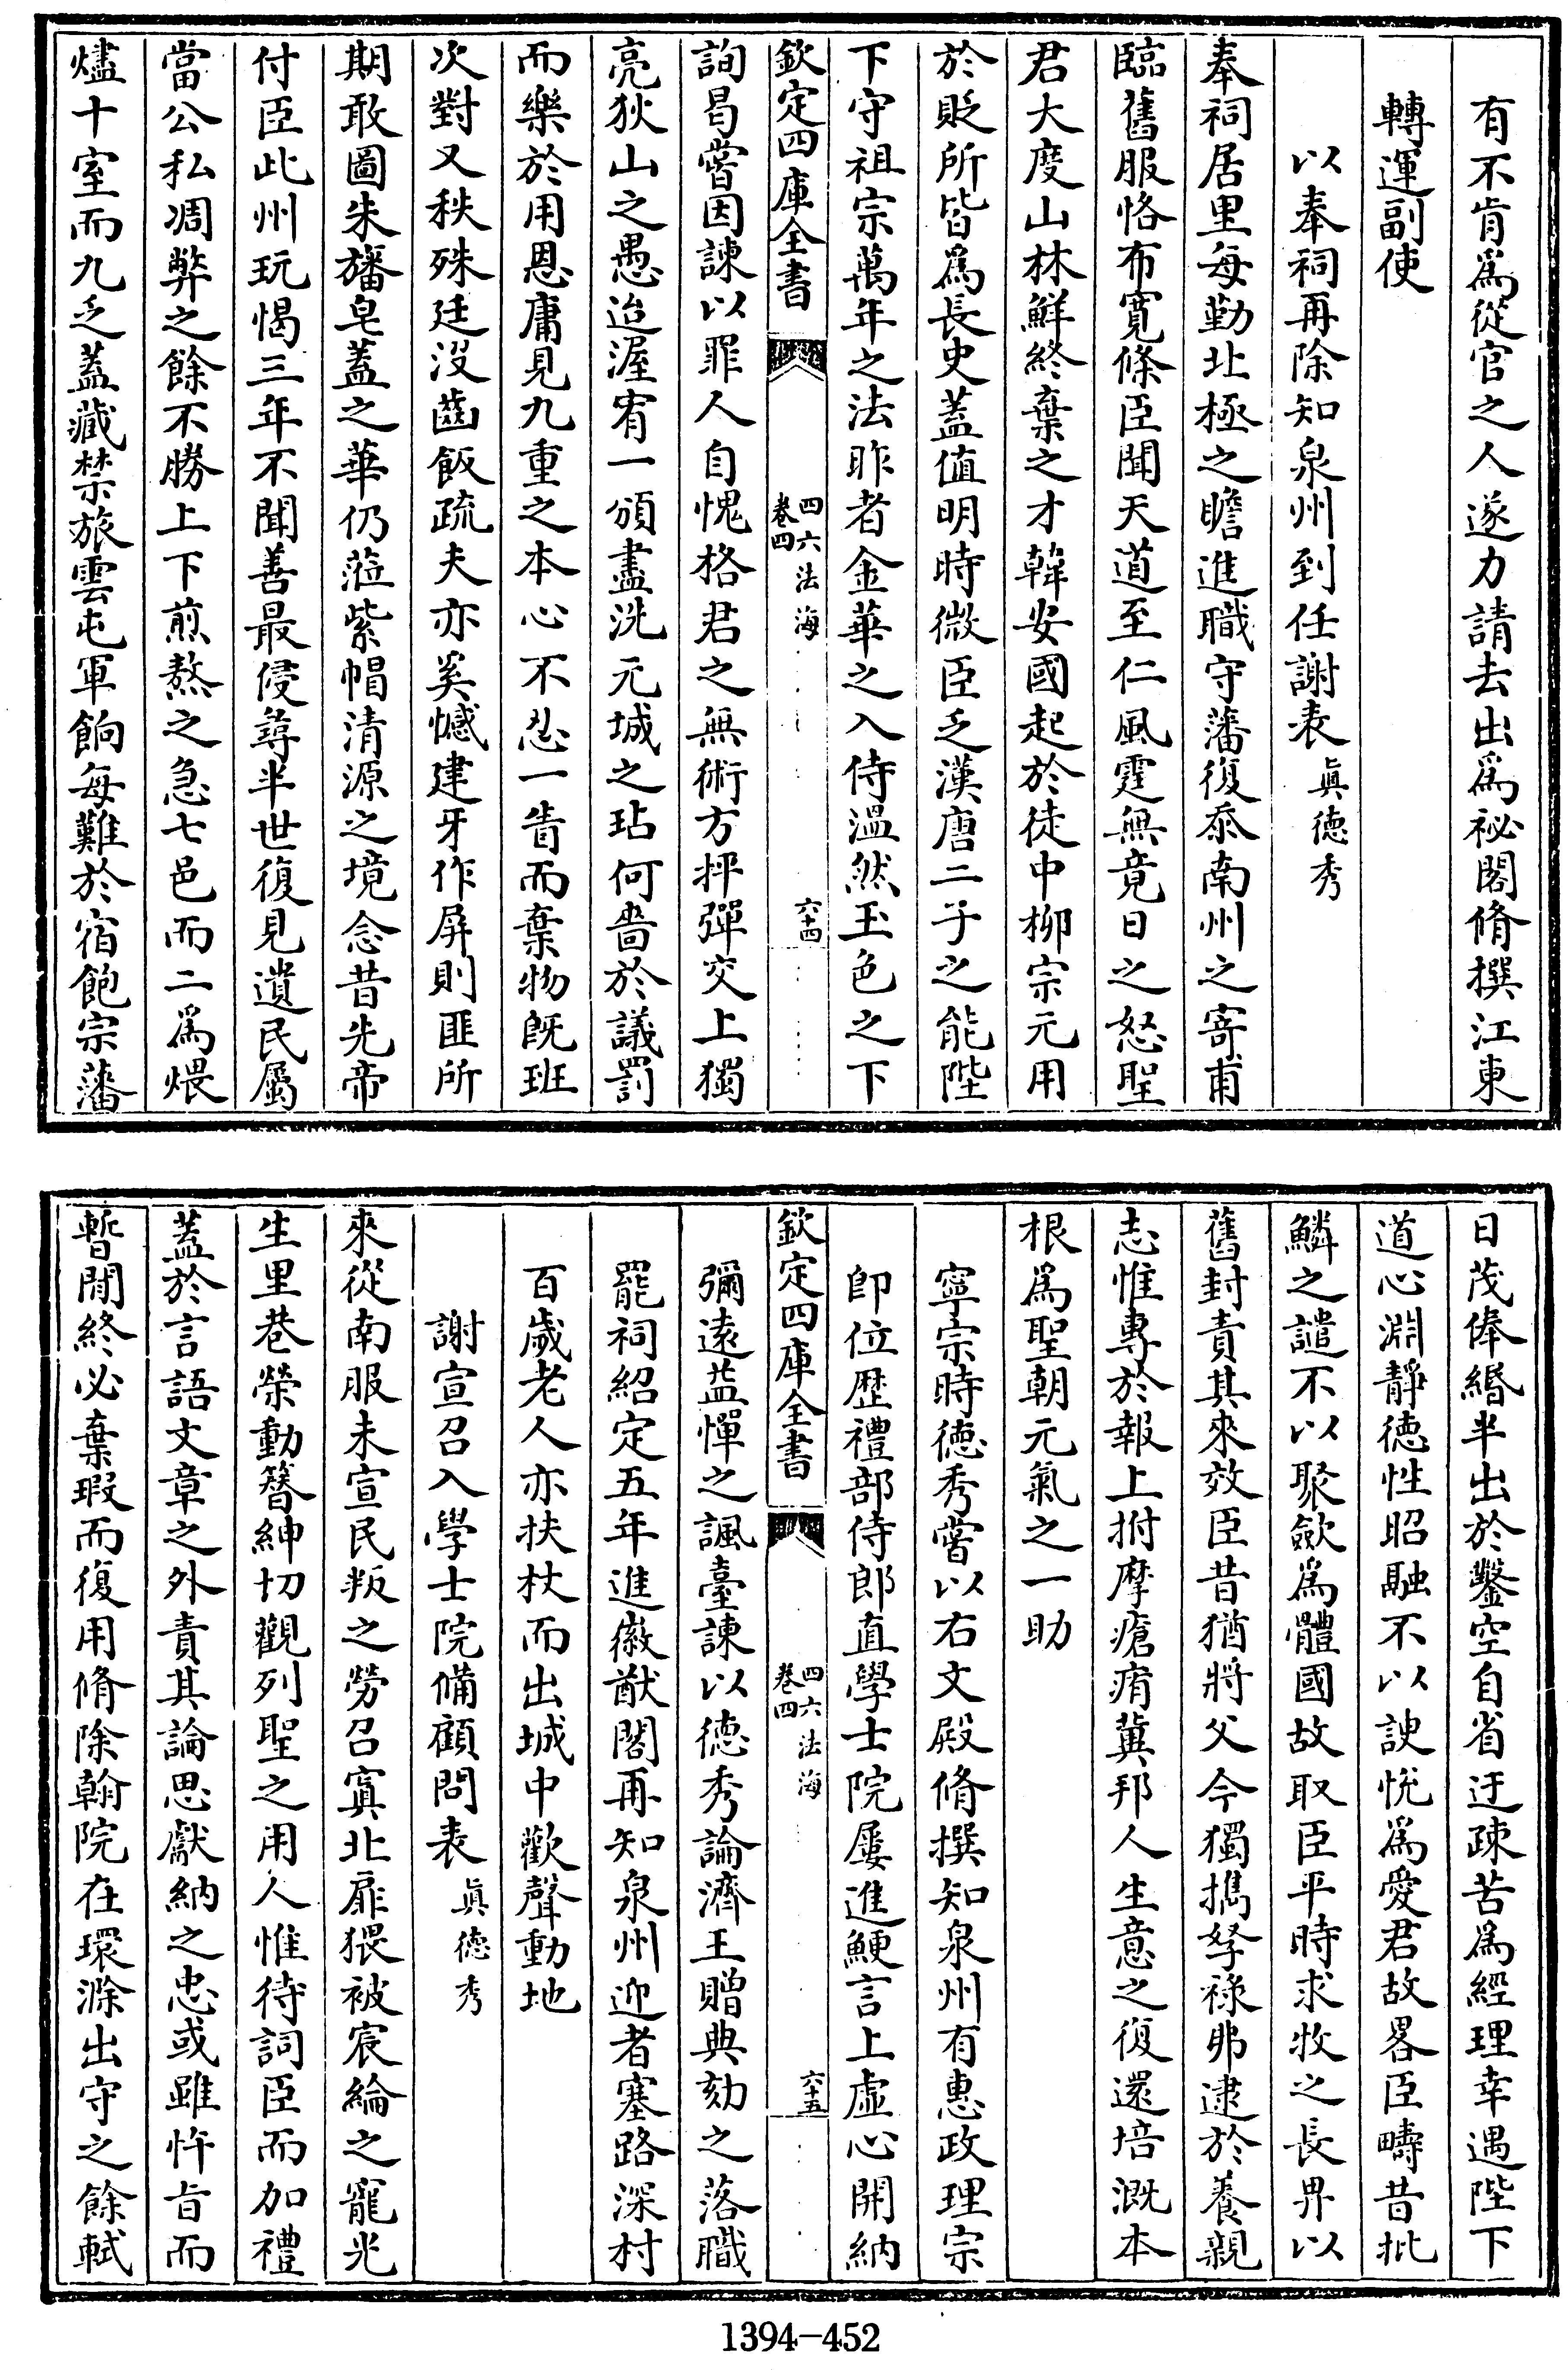 有不肯爲從官之人遂力請去出爲祕閣脩撰江東
轉運副使
以奉祠再除知泉州到任謝表 眞德秀
奉祠居里每勤北極之瞻進職守藩復忝南州之寄甫
臨舊服恪布寛條臣聞天道至仁風霆無竟日之怒聖
君大度山林鮮終棄之才韓安國起於徒中柳宗元用
於貶所皆爲長史蓋值明時微臣乏漢唐二子之能陛
下守祖宗萬年之法昨者金華之入侍溫然玉色之下
欽定四庫全書 四六法海 卷四 六十四
詢曷嘗因諫以罪人自愧格君之無術方抨彈交上獨
亮狄山之愚迨渥宥一頒盡洗元城之玷何啻於議罰
而樂於用恩庸見九重之本心不忍一眚而棄物旣班
次對又秩殊廷沒齒飯疏夫亦奚憾建牙作屏則匪所
期敢圖朱旛皂蓋之華仍蒞紫帽清源之境念昔先帝
付臣此州玩愒三年不聞善最侵尋半世復見遺民屬
當公私凋弊之餘不勝上下煎熬之急七邑而二爲煨
燼十室而九乏蓋藏禁旅雲屯軍餉每難於宿飽宗藩
日茂俸緡半出於鑿空自省迂疎苦爲經理幸遇陛下
道心淵靜德性昭融不以諛悅爲愛君故畧臣疇昔批
鱗之譴不以聚歛爲體國故取臣平時求牧之長畀以
舊封責其來效臣昔猶將父今獨攜孥祿弗逮於養親
志惟專於報上拊摩瘡痏冀邦人生意之復還培溉本
根爲聖朝元氣之一助
寧宗時德秀嘗以右文殿脩撰知泉州有惠政理宗
卽位歷禮部侍郎直學士院屢進鯁言上虛心開納
欽定四庫全書 四六法海 卷四 六十五
彌遠益憚之諷臺諫以德秀論濟王贈典劾之落職
罷祠紹定五年進徽猷閣再知泉州迎者塞路深村
百歲老人亦扶杖而出城中歡聲動地
謝宣召入學士院備顧問表 眞德秀
來從南服未宣民叛之勞召寘北扉猥被宸綸之寵光
生里巷榮動簪紳切觀列聖之用人惟待詞臣而加禮
蓋於言語文章之外責其論思獻納之忠或雖忤旨而
暫閒終必棄瑕而復用脩除翰院在環滁出守之餘軾
1394-452